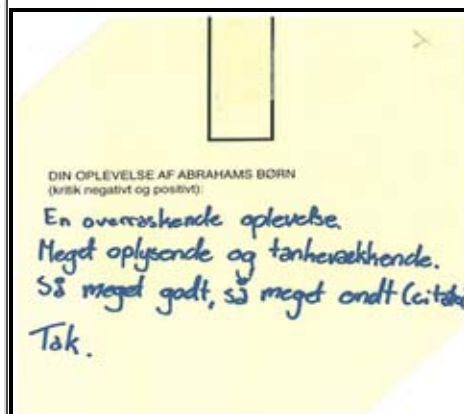 DIN OPLEVELSE AF ABRAHAMS BØRN
(kritik negativt og positivt):
En overraskende oplevelse.
Meget oplysende og tankevækkende.
Så meget godt, så meget ondt
Tak.